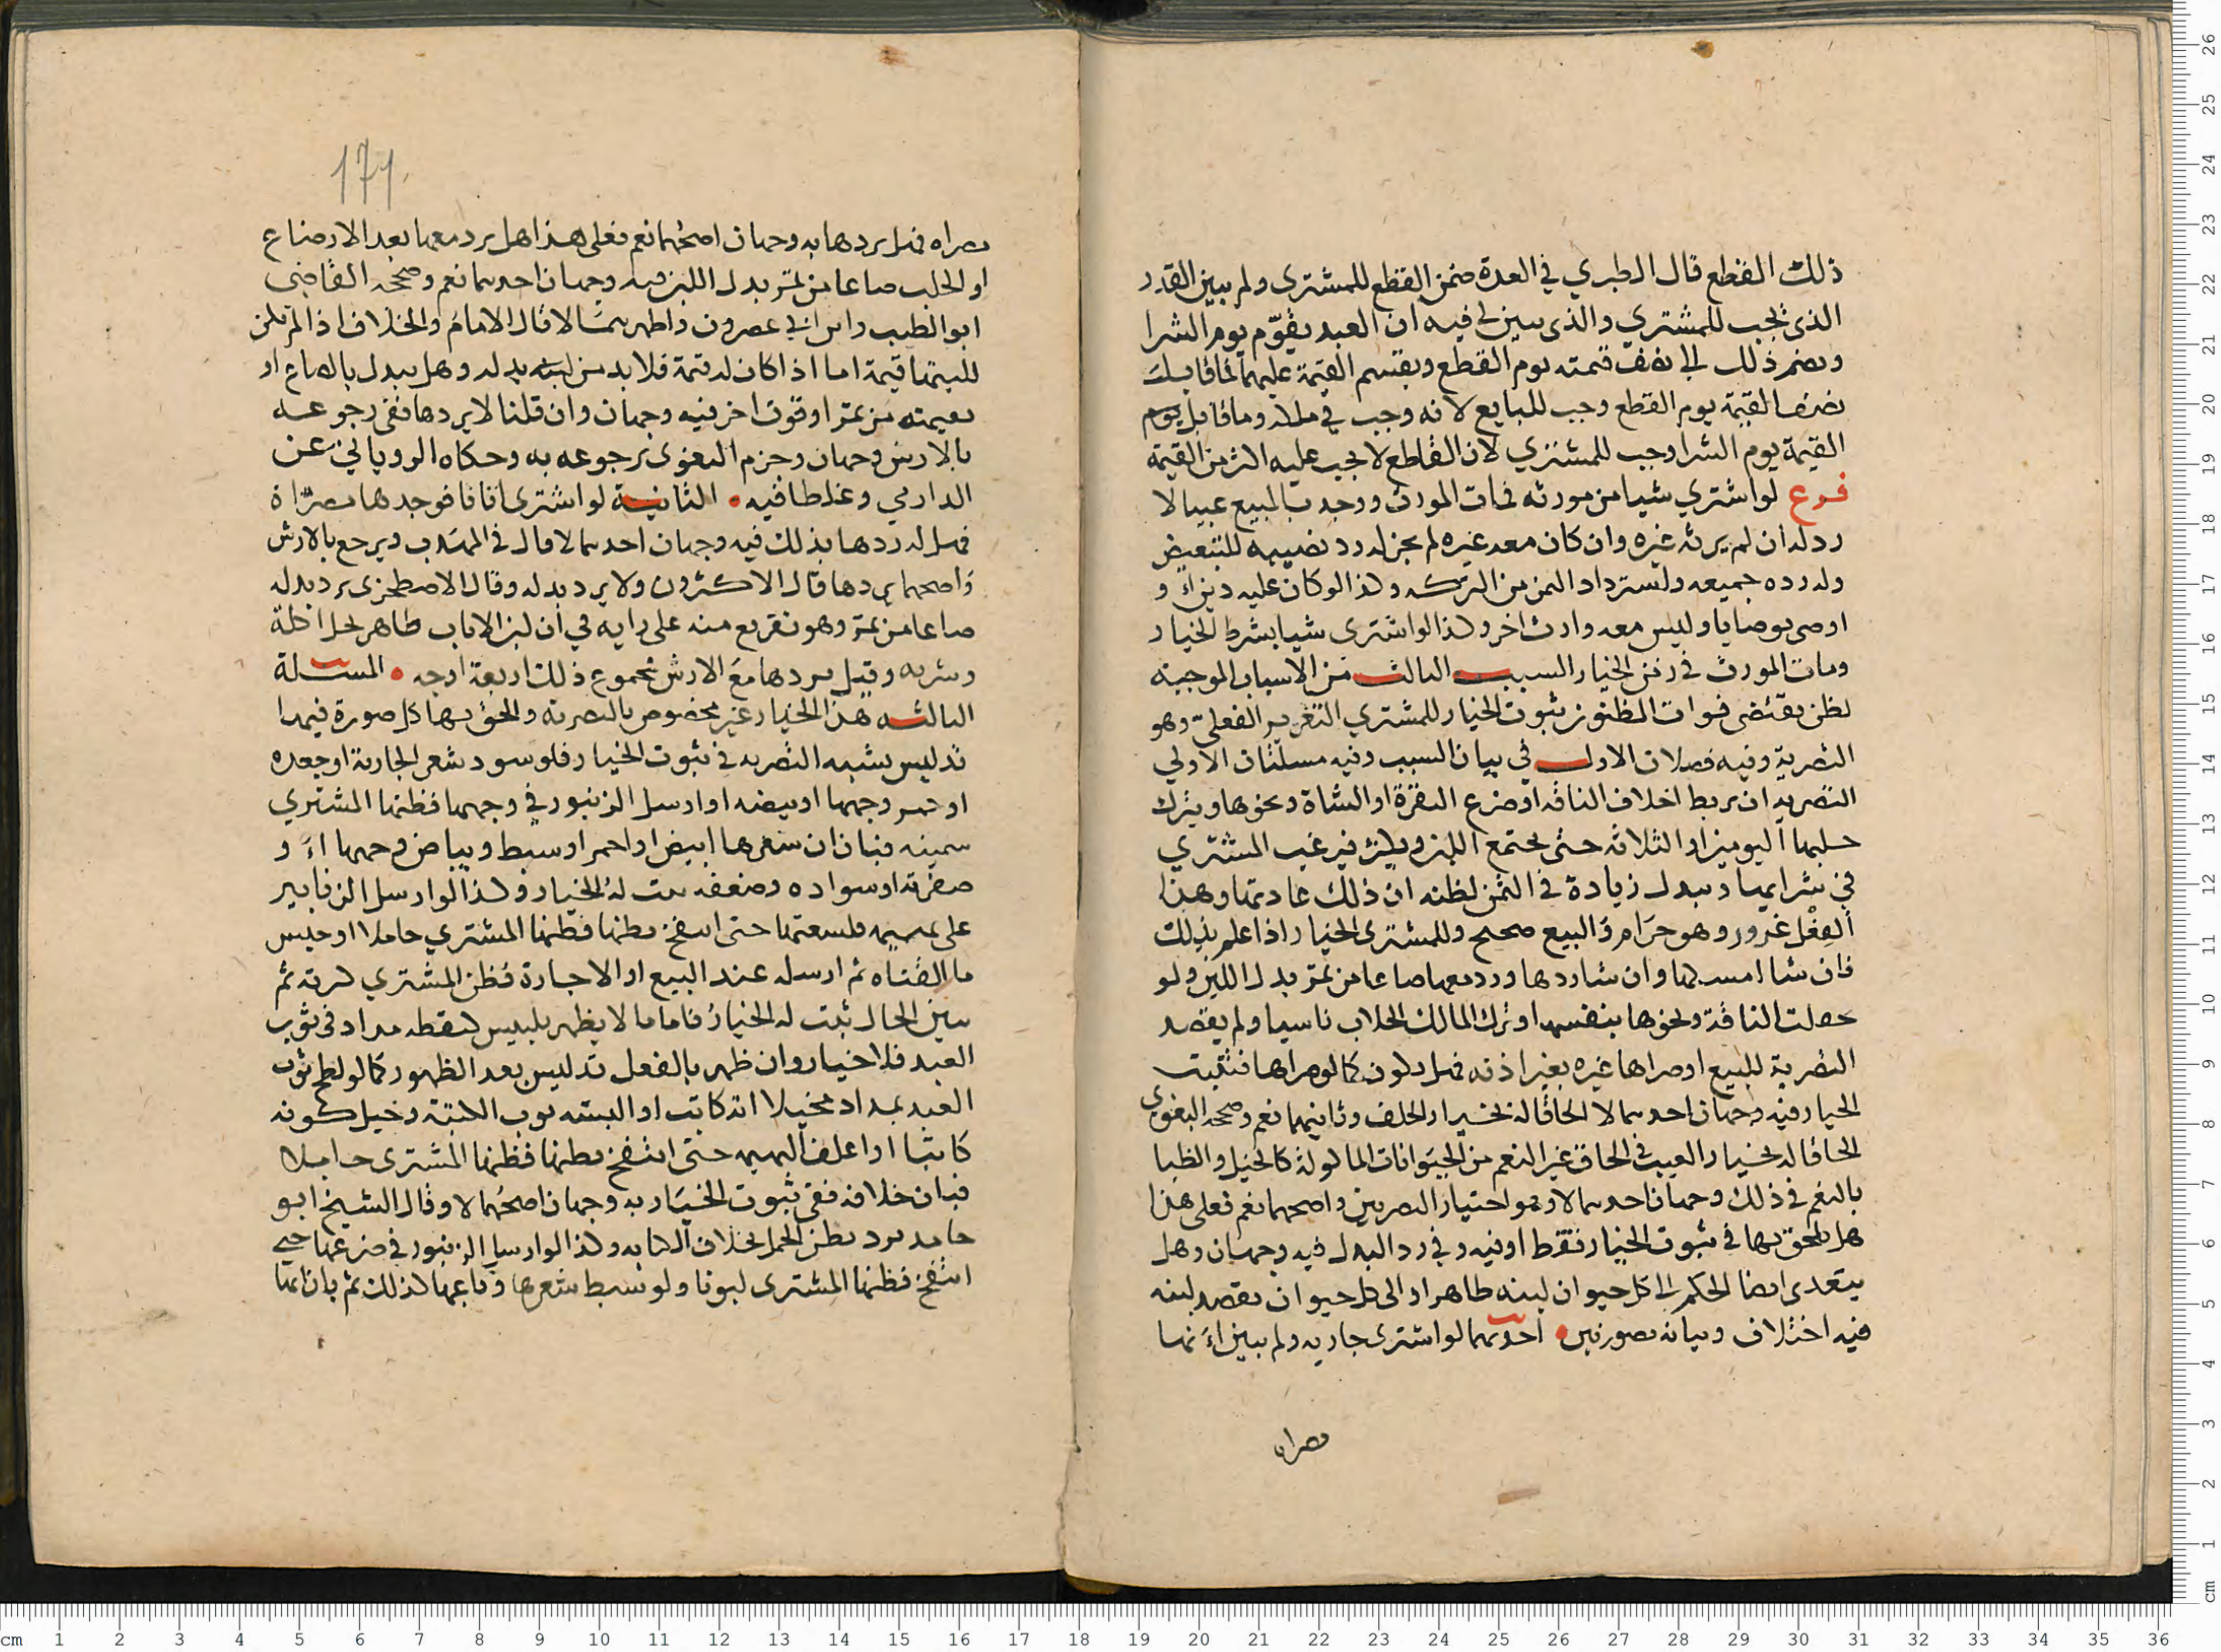 ذلك القطع قال الطبري في العدة ضمن القطع للمشتري ولم يبين القدر
الذي يجب للمشتري والذي يتبين لي فيه ان العبد يقوّم يوم الشرا
ويضم ذلك الى نصف قيمته يوم القطع ويقسم القيمة عليهما فما قابل
نصف القيمة يوم القطع وجب للبايع لانه وجب في ملكه وما قابل يوم
القيمة يوم الشرا وجب للمشتري لان القاطع لا يجب عليه اكثر من القيمة
فرع لو اشتري شيا من مورثه فمات المورث ووجد بالمبيع عيبا لا
رد له ان لم يرثه غيره وان كان معه غيره لم يجز له رد نصيبه للتبعيض
وله رده جميعه ولسترداد الثمن من التركه وكذا لو كان عليه دين او
اوصى بوصايا وليس معه وارث اخر وكذا لو اشترى شيا بشرط الخيار
ومات المورث في زمن الخيار السبب الثالث من الاسباب الموجبه
لظن يقتضى فوات المظنون ثبوت الخيار للمشتري التغرير الفعليّ وهو
التصرية وفيه فصلان الاول في بيان السبب وفيه مسلتان الاولي
التصريه ان يربط اخلاف الناقه او ضرع البقرة او الشاة ونحوها ويترك
حلبها اليومين او الثلاثه حتى يجتمع اللبن ويكثر فيرغب المشتري
في شرايها ويبدل زيادة في الثمن لظنه ان ذلك عادتها وهذا
الفعل غرور وهو حرام والبيع صحيح وللمشترى الخيار اذا علم بذلك
فان شا امسكها وان شا ردها ورد معها صاعا من تمر بدل اللبن ولو
حفلت الناقة ونحوها بنفسها او ترك المالك الحلاب ناسيا ولم يقصد
التصرية للبيع او صراها غيره بغير اذنه فهل يكون كما لو صراها فتثبت
الخيار وفيه وجهان احدهما لا الحاقا له بخيار الخلف وثانيهما نعم وصححه البغوي
الحاقا له بخيار العيب في الحاق غير النعم من الحيوانات الماكولة كالخيل والظبا
بالنعم في ذلك وجهان احدهما لا وهو اختيار البصريين واصحهما نعم فعلى هذا
هل يلحق بها في ثبوت الخيار فقط او فيه وفي رد البدل فيه وجهان وهل
يتعدى ايضا الحكم الى كل حيوان لبنه طاهر او الى كل حيوان يقصد لبنه
فيه اختلاف وبيانه بصورتين احديهما لو اشترى جاريه ولم يبين انها
مصراه
171
مصراه فهل يردها به وجهان اصحهما نعم فعلى هذا هل يرد معها بعد الارضاع
او الحلب صاعا من تمر بدل اللبن فيه وجهان احدهما نعم وصححه القاضي
ابو الطيب وابن ابي عصرون واظهرهما لا قال الامام والخلاف اذا لم يكن
للبنها قيمة اما اذا كان له قيمة فلا بد من بدله وهل يبدل بالصاع او
بقيمته من تمر او قوت اخر فيه وجهان وان قلنا لا يردها ففى رجوعه
بالارش وجهان وجزم البغوي برجوعه به وحكاه الروياني عن
الدارمي وغلطا فيه الثانية لو اشترى اتانا فوجدها مصرّاة
فهل له ردها بذلك فيه وجهان احدهما لا قال في المهذب ويرجع بالارش
واصحهما يردها قال الاكثرون ولا يرد بدله وقال الاصطخرى يرد بدله
صاعا من تمر وهو تفريع منه على رايه في ان لبن الاتان طاهر يحل اكله
وشربه وقيل يردها مع الارش فمجموع ذلك اربعة اوجه المسئلة
الثالثه هذا الخيار غير مخصوص بالتصريه والحق بها كل صورة فيها
تدليس يشبه التصريه في ثبوت الخيار فلو سود شعر الجارية او جعده
او حمر وجهها او بيضه او ارسل الزنبور في وجهها فظنها المشتري
سمينه فبان ان شعرها ابيض او احمر او سبط وبياض وجهها او
صفرته او سواده وضعفه ثبت له الخيار وكذا لو ارسل الزنابير
على بهيمه فلسعتها حتى انتفخ بطنها فظنها المشتري حاملا او حبس
ما القناه ثم ارسله عند البيع او الاجارة فظن المشتري كثرته ثم
تبين الحال ثبت له الخيار فاما ما لا يظهر بلبيس كنقطه مداد في ثوب
العبد فلا خيار وان ظهر بالفعل تدليس بعد الظهور كما لو لطخ ثوب
العبد بمداد مخيلا انه كاتب او البسه ثوب الكتبة وخيل كونه
كاتبا او اعلف البهيمه حتى انتفخ بطنها فظنها المشترى حاملا
فبان خلافه ففي ثبوت الخيار به وجهان اصحهما لا وقال الشيخ ابو
حامد يرد بظن الحمل بخلاف الكتابه وكذا لو ارسل الزنبور في ضرعها حتى
انتفخ فظنها المشترى لبونا ولو سبط شعرها وباعها كذلك ثم بان انها